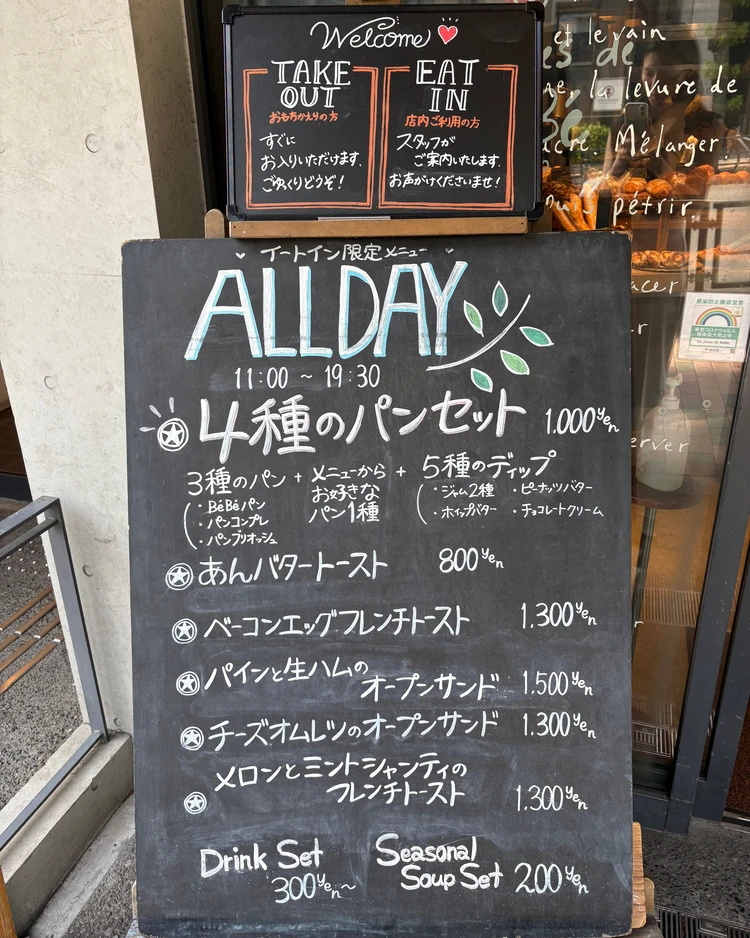 Welcome
TAKE
OUT
おもちかえりの方
すぐに
お入りいただけます。
ごゆっくりどうぞ!
EAT
IN
店内ご利用の方
スタッフが
ご案内いたします。
お声がけくださいませ!
et levain
es de
la levure de
acre. Mélanger.
pétrir.
acer
erver
イートイン限定メニュー
ALLDAY
11:00 ~ 19:30
4種のパンセット 1.000yen
3種のパン + メニューから + 5種のディップ
お好きな
パン1種
・BéBéパン
・パンコンプレ
・パンブリオッシュ
・ジャム2種 ・ピーナッツバター
・ホイップバター ・チョコレートクリーム
あんバタートースト 800yen
ベーコンエッグフレンチトースト 1.300yen
パインと生ハムの
オープンサンド 1.500yen
チーズオムレツのオープンサンド 1.300yen
メロンとミントシャンティの
フレンチトースト 1.300yen
Drink Set
300yen~
Seasonal
Soup Set 200yen